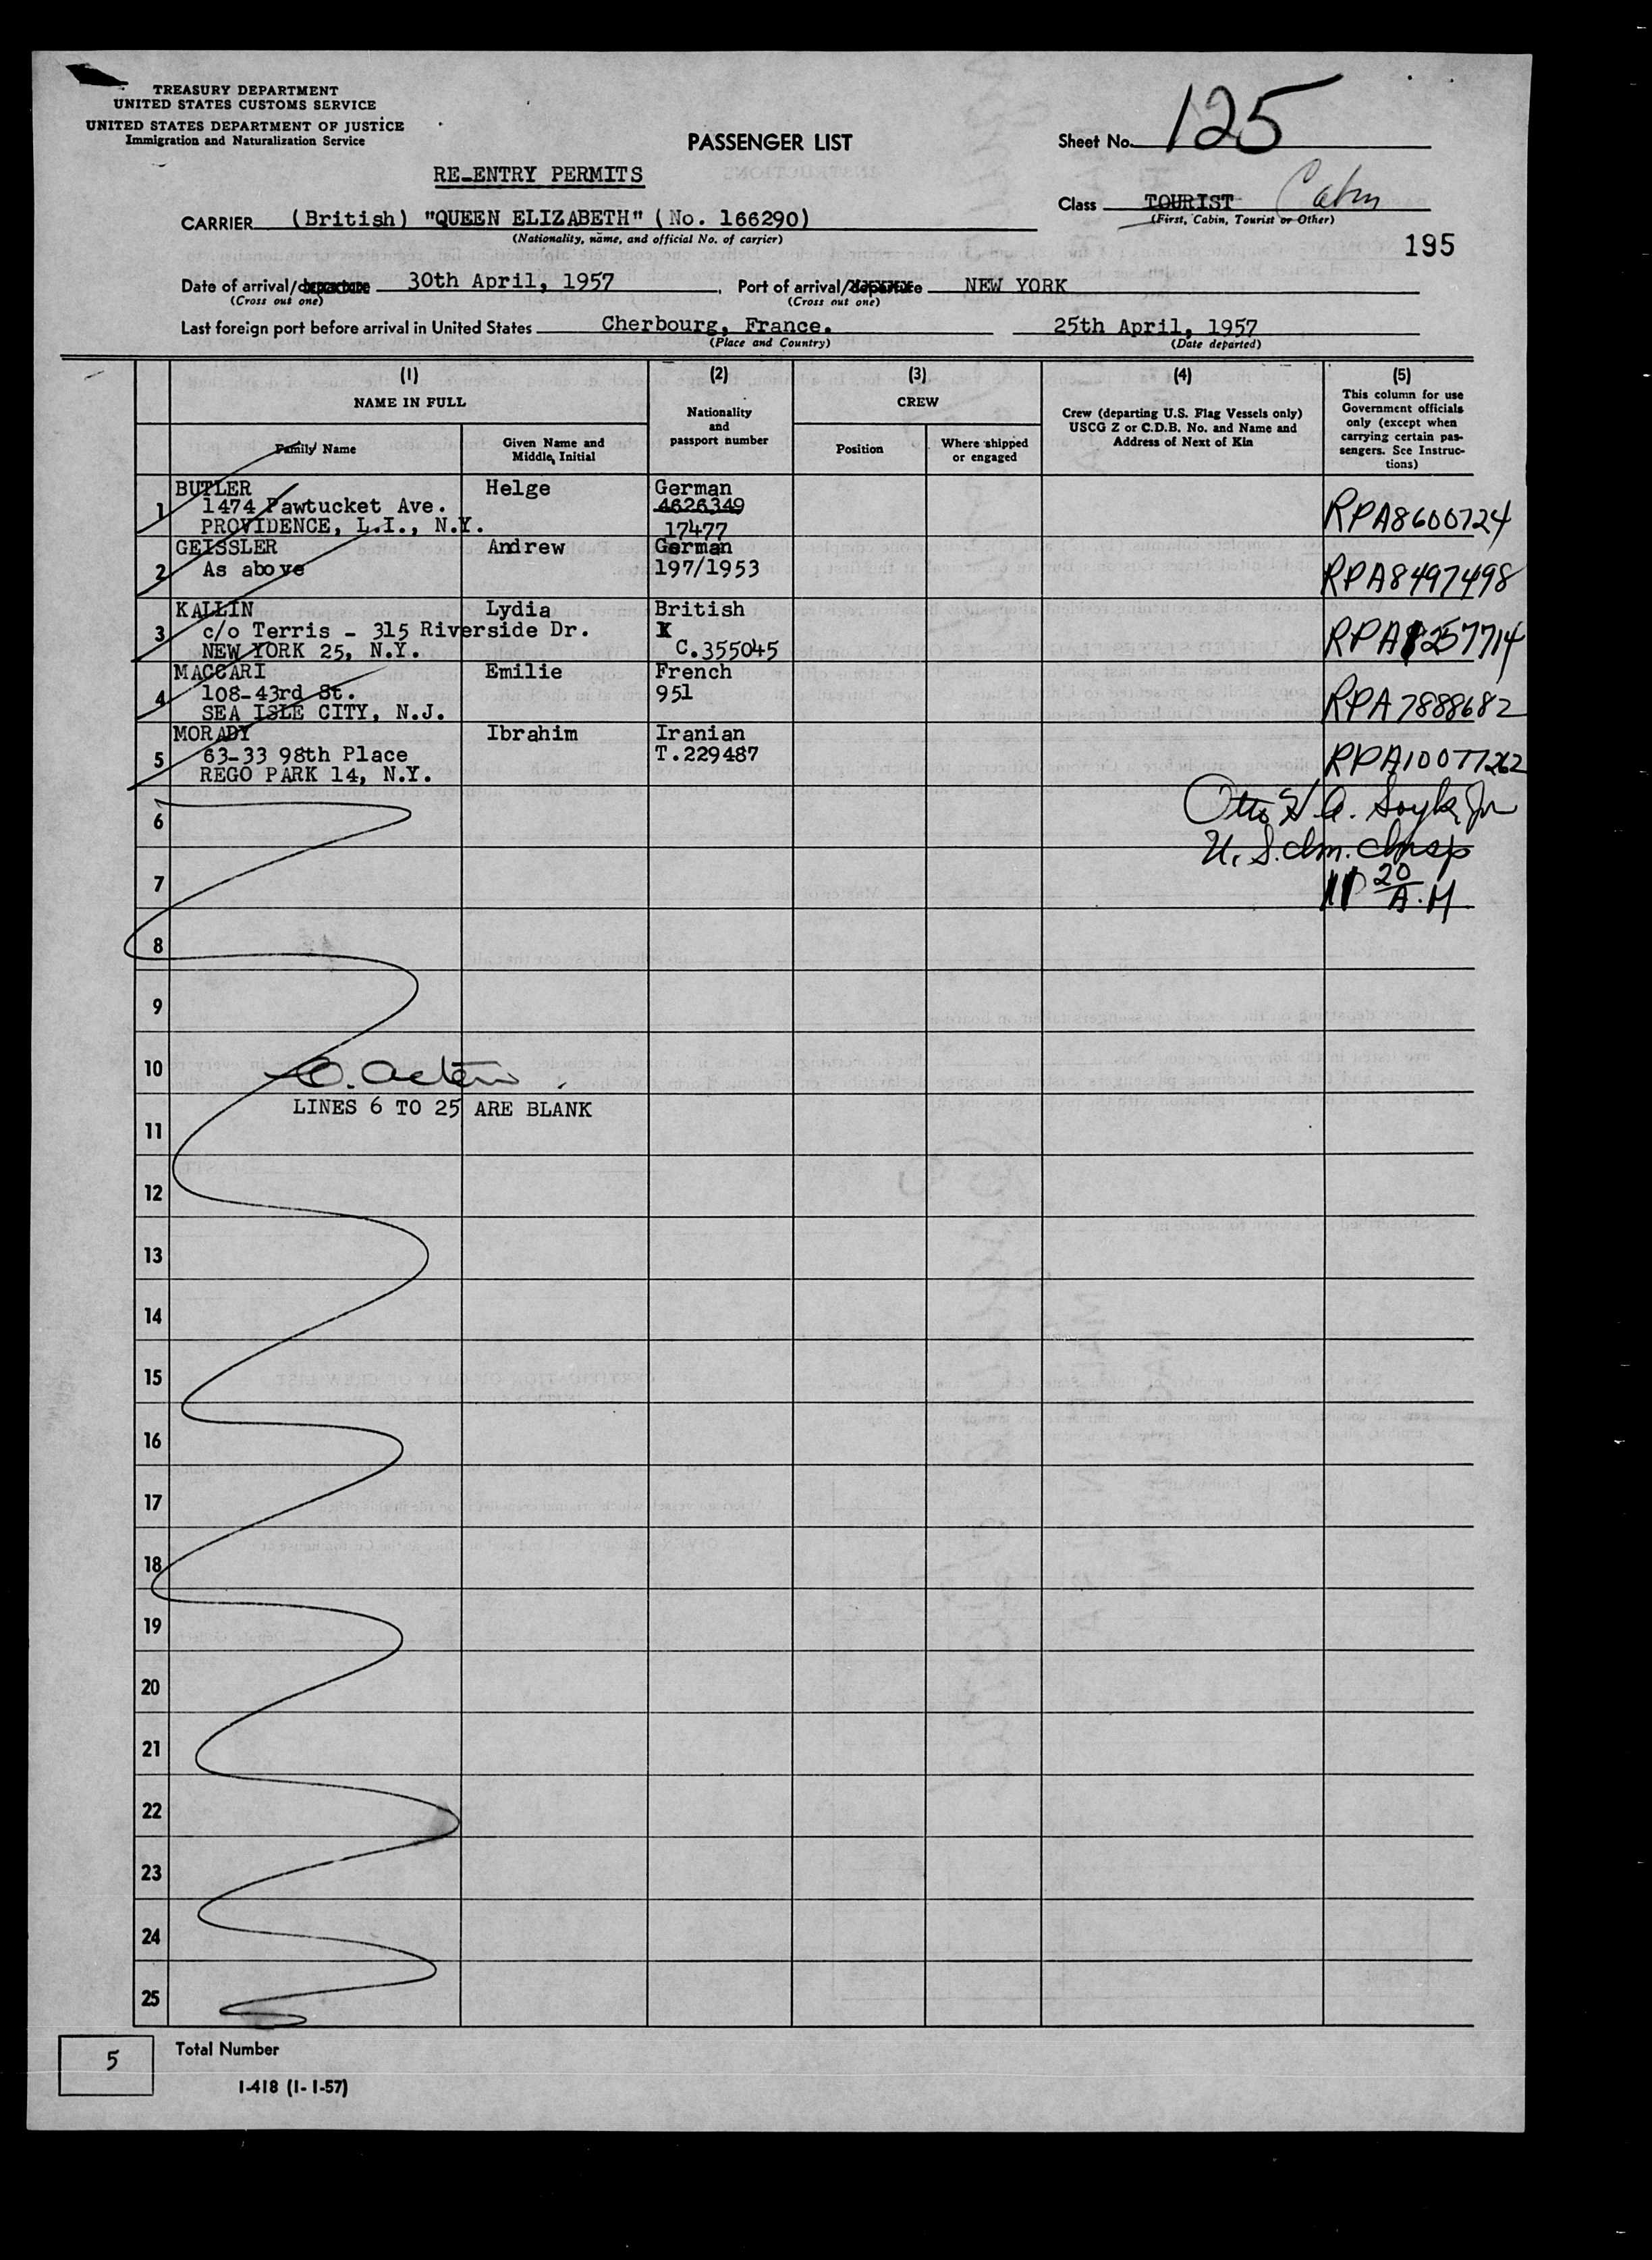 TREASURY DEPARTMENT
UNITED STATES CUSTOMS SERVICE
UNITED STATES DEPARTMENT OF JUSTICE
Immigration and Naturalization Service
PASSENGER LIST
Sheet No. 125
RE-ENTRY PERMITS
Class TOURIST Cabin
(First, Cabin, Tourist or Other)
CARRIER (British) "QUEEN ELIZABETH" (No. 166290)
(Nationality, name, and official No. of carrier)
195
Date of arrival/departure 30th April, 1957. Port of arrival/departure NEW YORK
(Cross out one) (Cross out one)
Last foreign port before arrival in United States Cherbourg, France. 25th April, 1957
(Place and Country) (Date departed)
(1) (2) (3) (4) (5)
NAME IN FULL
Family Name
Given Name and Middle Initial
Nationality
and
passport number
CREW
Position
Where shipped
or engaged
Crew (departing U.S. Flag Vessels only)
USCG Z or C.D.B. No. and Name and
Address of Next of Kin
This column for use
Government officials
only (except when
carrying certain pas-
sengers. See Instruc-
tions)
1 BUTLER Helge German
1474 Pawtucket Ave. 4626349
PROVIDENCE, L.I., N.Y. 17477 RPA8600724
2 GEISSLER Andrew German
As above 197/1953 RPA8497498
3 KALLIN Lydia British
c/o Terris - 315 Riverside Dr. X
NEW YORK 25, N.Y. C.355045 RPA8257714
4 MACCARI Emilie French
108-43rd St. 951
SEA ISLE CITY, N.J. RPA7888682
5 MORADY Ibrahim Iranian
63-33 98th Place T.229487
REGO PARK 14, N.Y. RPA10077262
6
Otto H A. Soyk Jr
U.S. Im. Insp
7
11 20 A.M
8
9
10
LINES 6 TO 25 ARE BLANK
11
12
13
14
15
16
17
18
19
20
21
22
23
24
25
5 Total Number
I-418 (1-1-57)